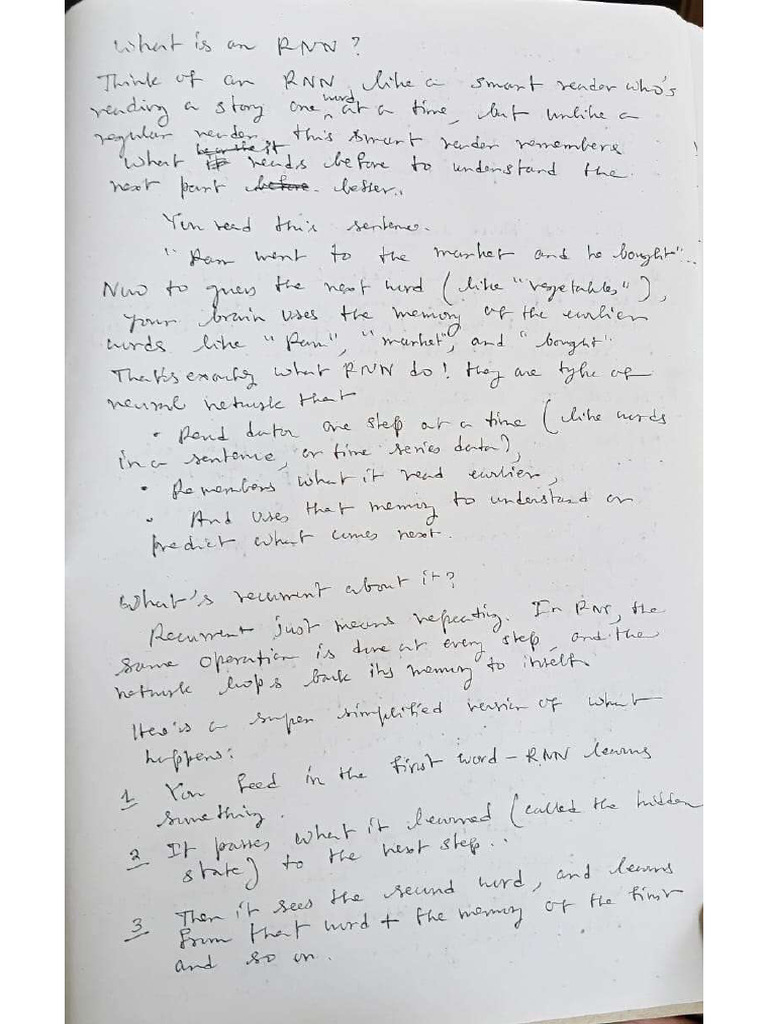 What is an RNN?
Think of an RNN like a smart reader who's
reading a story one word at a time, but unlike a
regular reader, this smart reader remembers
what it reads before to understand the
next part before. better..
You read this sentence.
"Ram went to the market and he bought"...
Now to guess the next word (like "vegetables"),
your brain uses the memory of the earlier
words like "Ram", "market", and "bought".
That's exactly what RNN do! they are type of
neural network that
• Read data one step at a time (like words
in a sentence, or time series data),
• Remembers what it read earlier,
• And uses that memory to understand or
predict what comes next.
What's recurrent about it?
Recurrent just means repeating. In RNN, the
same operation is done at every step, and the
network loops back its memory to itself.
Here's a super simplified version of what
happens:
1 You feed in the first word - RNN learns
something.
2 It passes what it learned (called the hidden
state) to the next step..
3 Then it sees the second word, and learns
from that word + the memory of the first
and so on..